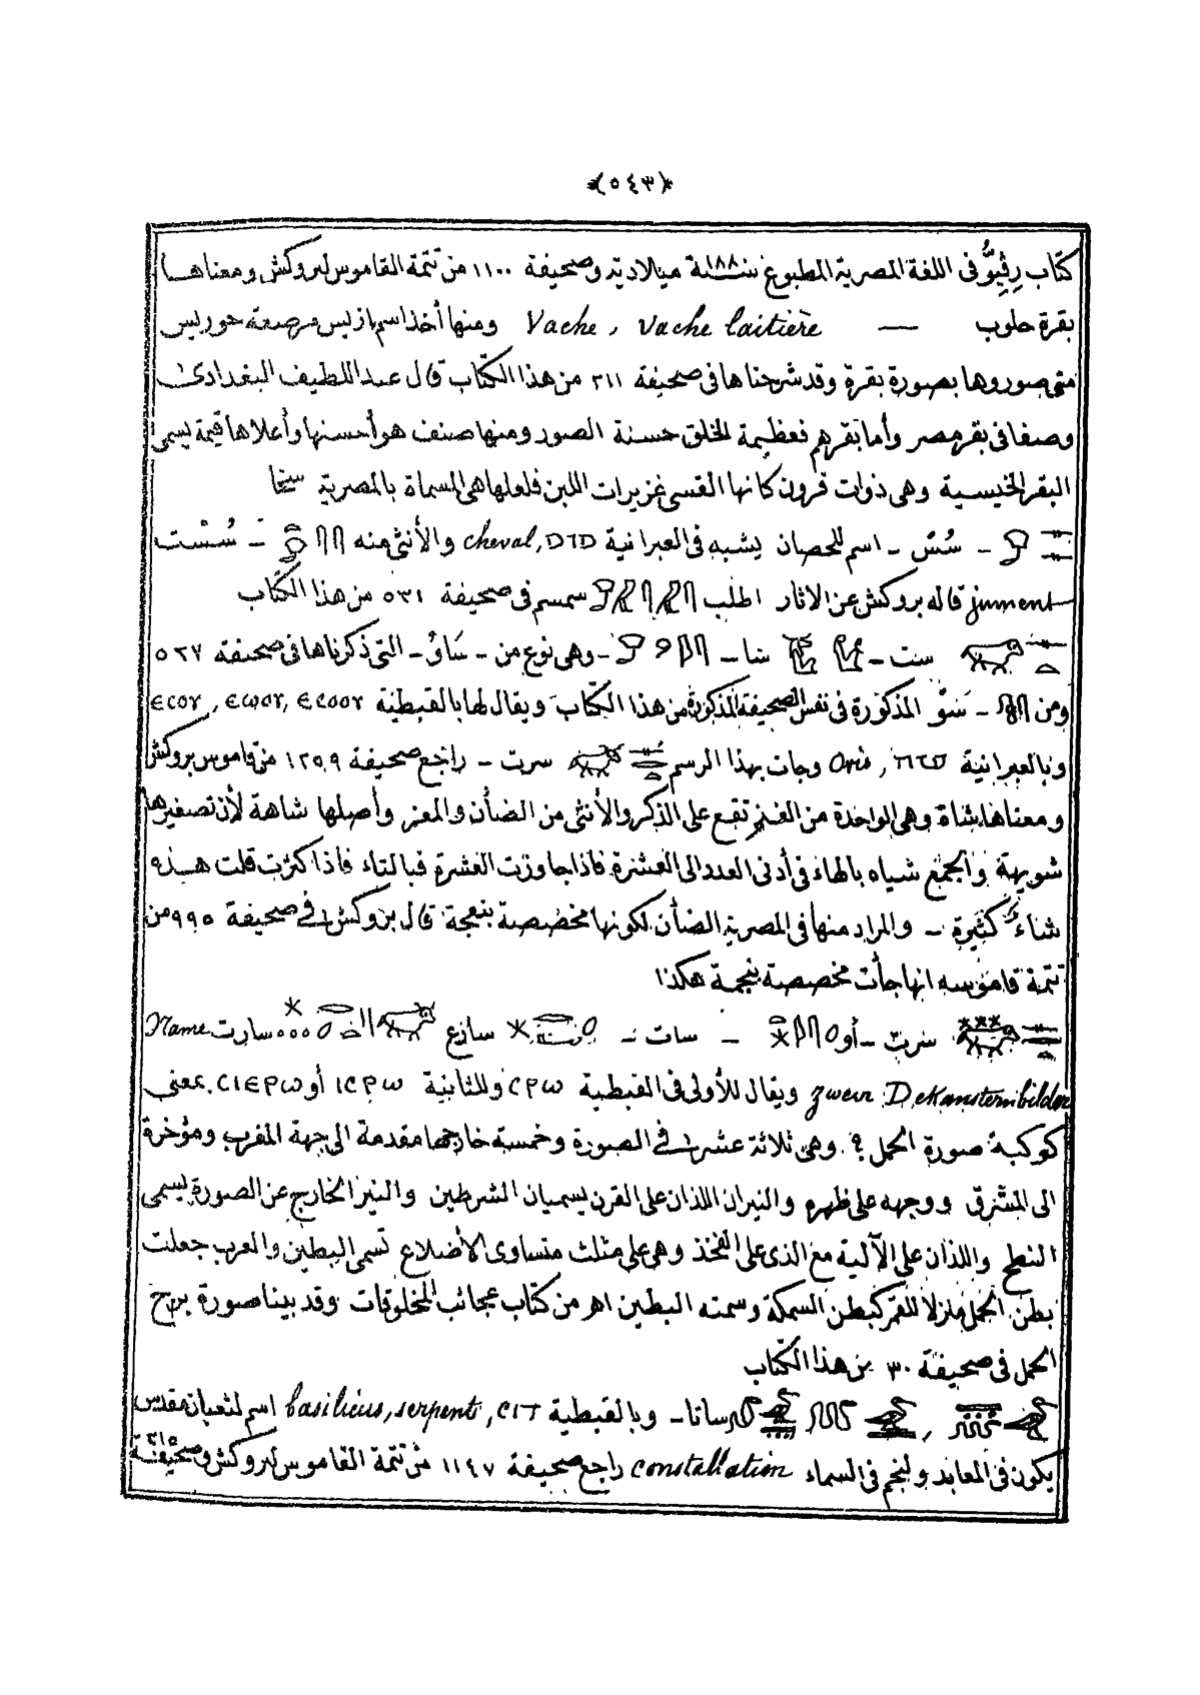 (٥٤٣)
كتاب رِفِيُّو فى اللغة المصرية المطبوع سنة ١٨٨ ميلادية وصحيفة ١١٠٠ من تتمة القاموس لبروكش ومعناها
بقرة حلوب — Vache, vache laitière ومنها أخذ اسم ازليس مرضعة حوريس
متى صوروها بصورة بقرة وقد شرحناها فى صحيفة ٣١١ من هذا الكتاب قال عبد اللطيف البغدادى
وصفا فى بقر مصر وأما بقرهم فعظيمة الخلق حسنة الصور ومنها صنف هو أحسنها وأعلاها قيمة يسمى
البقر الخيسية وهى ذوات قرون كانها القسى غزيرات اللبن فلعلها هى المسماة بالمصرية سخا
ـ سُسْ ـ اسم للحصان يشبه فى العبرانية סוס, cheval والأنثى منه ـ سُسْت
jument قاله بروكش عن الاثار اطلب سمسم فى صحيفة ٥٣١ من هذا الكتاب
سنت ـ سا ـ ـ وهى نوع من ـ سَاوُ ـ التى ذكرناها فى صحيفة ٥٢٧
ومن ـ سَوّ المذكورة فى نفس الصحيفة المذكورة من هذا الكتاب ويقال لها بالقبطية ⲉⲥⲟⲟⲩ, ⲉⲥⲱⲟⲩ, ⲉⲥⲟⲩ
وبالعبرانية Ovis, وجات بهذا الرسم سرت ـ راجع صحيفة ١٢٥٩ من قاموس بروكش
ومعناها شاة وهى الواحدة من الغنم تقع على الذكر والأنثى من الضأن والمعز وأصلها شاهة لأن تصغيرها
شويهة والجمع شياه بالهاء فى أدنى العدد الى العشرة فاذا جاوزت العشرة فبالتاء فاذا كثرت قلت هذه
شاءٌ كثيرة ـ والمراد منها فى المصرية الضأن لكونها مخصصة بنعجة قال بروكش فى صحيفة ٩٩٥ من
تتمة قاموسه انها جأت مخصصة بنجمة هكذا
سرت ـ أو ـ سات ـ سارع سارت Name
zweier Dekansternbilder ويقال للأولى فى القبطية ⲥⲣⲱ وللثانية ⲓⲥⲣⲱ أو ⲥⲓⲉⲣⲱ بمعنى
كوكبة صورة الحمل ؟ وهى ثلاثة عشر فى الصورة وخمسة خارجها مقدمة الى جهة المغرب ومؤخرة
الى المشرق ووجهه على ظهره والنيران اللذان على القرن يسميان الشرطين والنير الخارج عن الصورة يسمى
النطح واللذان على الآلية مع الذى على الفخذ وهى على مثلث متساوى الأضلاع تسمى البطين والعرب جعلت
بطن الحمل منزلا للقمر كبطن السمكة وسمته البطين اهر من كتاب عجائب المخلوقات وقد بينا صورة برج
الحمل فى صحيفة ٣٠ من هذا الكتاب
ساتا ـ وبالقبطية ⲥⲓⲧ, basilicus, serpent اسم لثعبان مقدس
يكون فى المعابد ولنجم فى السماء constallation راجع صحيفة ١١٤٧ من تتمة القاموس لبروكش وصحيفة ٣١٥